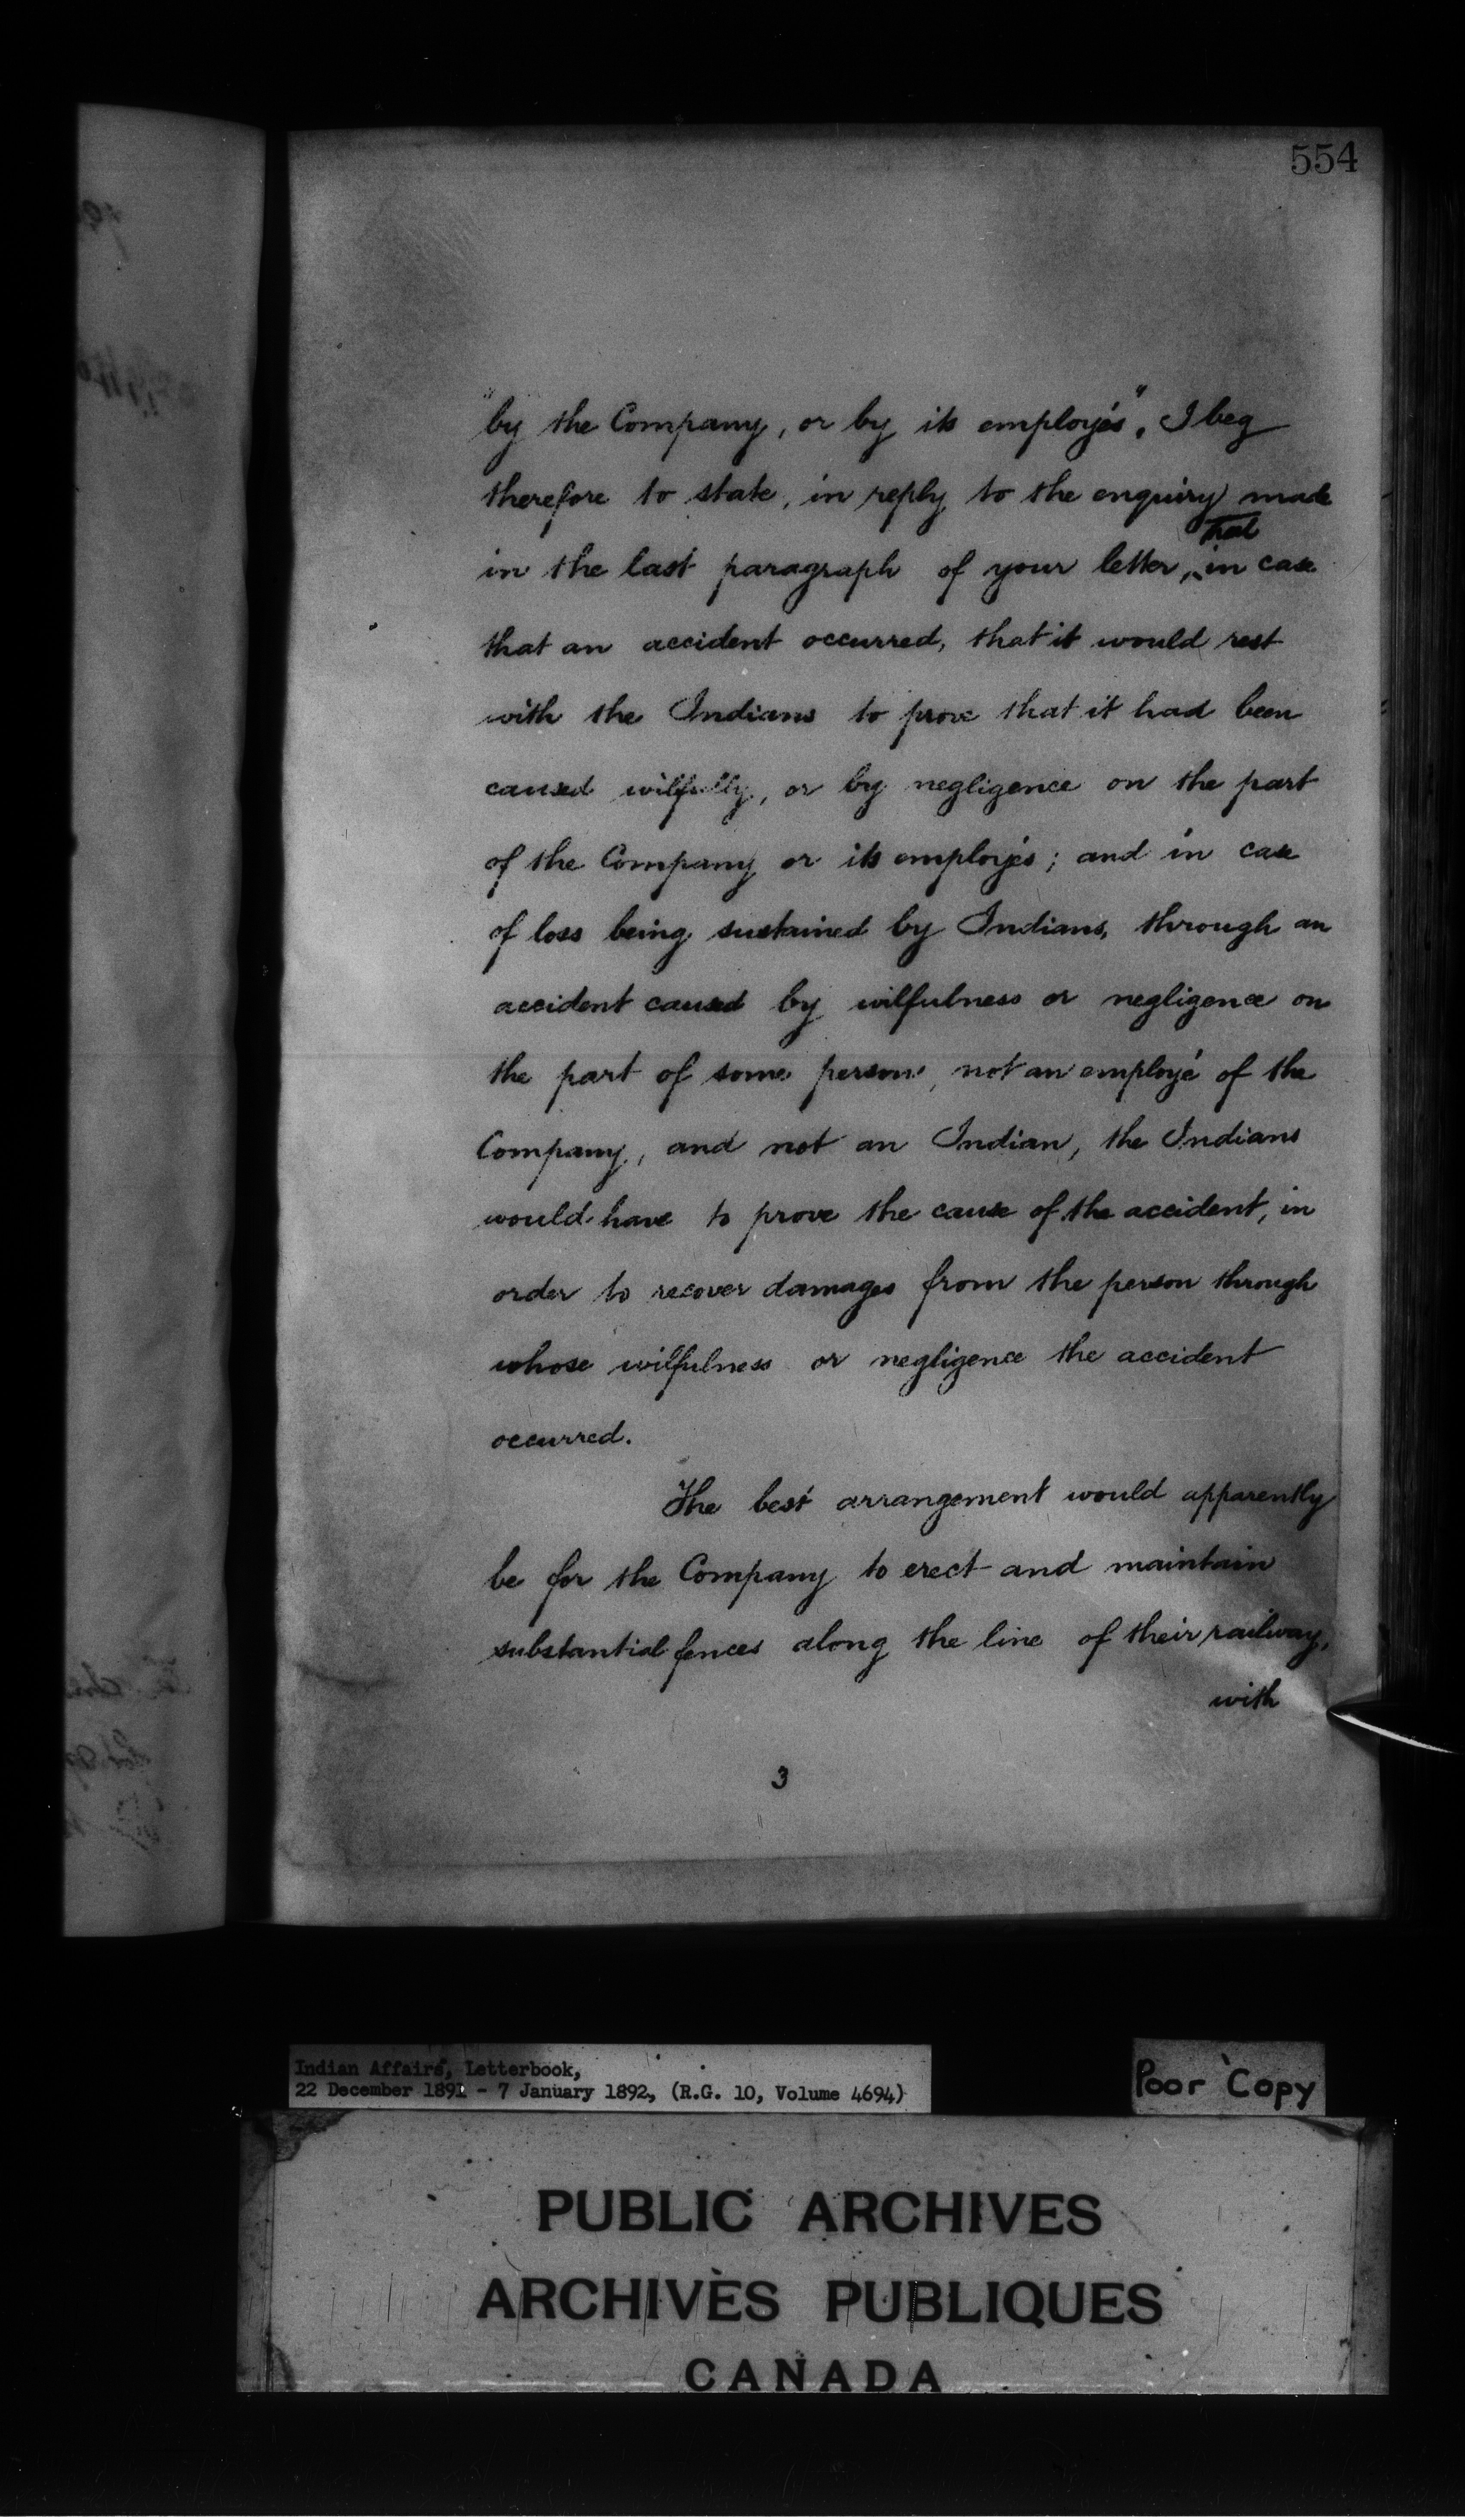 554
"by the Company, or by its employés". I beg
therefore to state, in reply to the enquiry made
that
in the last paragraph of your letter, in case
that an accident occurred, that it would rest
with the Indians to prove that it had been
caused wilfully, or by negligence on the part
of the Company or its employés; and in case
of loss being sustained by Indians, through an
accident caused by wilfulness or negligence on
the part of some person, not an employé of the
Company, and not an Indian, the Indians
would have to prove the cause of the accident, in
order to recover damages from the person through
whose wilfulness or negligence the accident
occurred.
The best arrangement would apparently
be for the Company to erect and maintain
substantial fences along the line of their railway,
with
3
Indian Affairs, Letterbook,
22 December 1891 - 7 January 1892, (R.G. 10, Volume 4694)
Poor Copy
PUBLIC ARCHIVES
ARCHIVES PUBLIQUES
CANADA